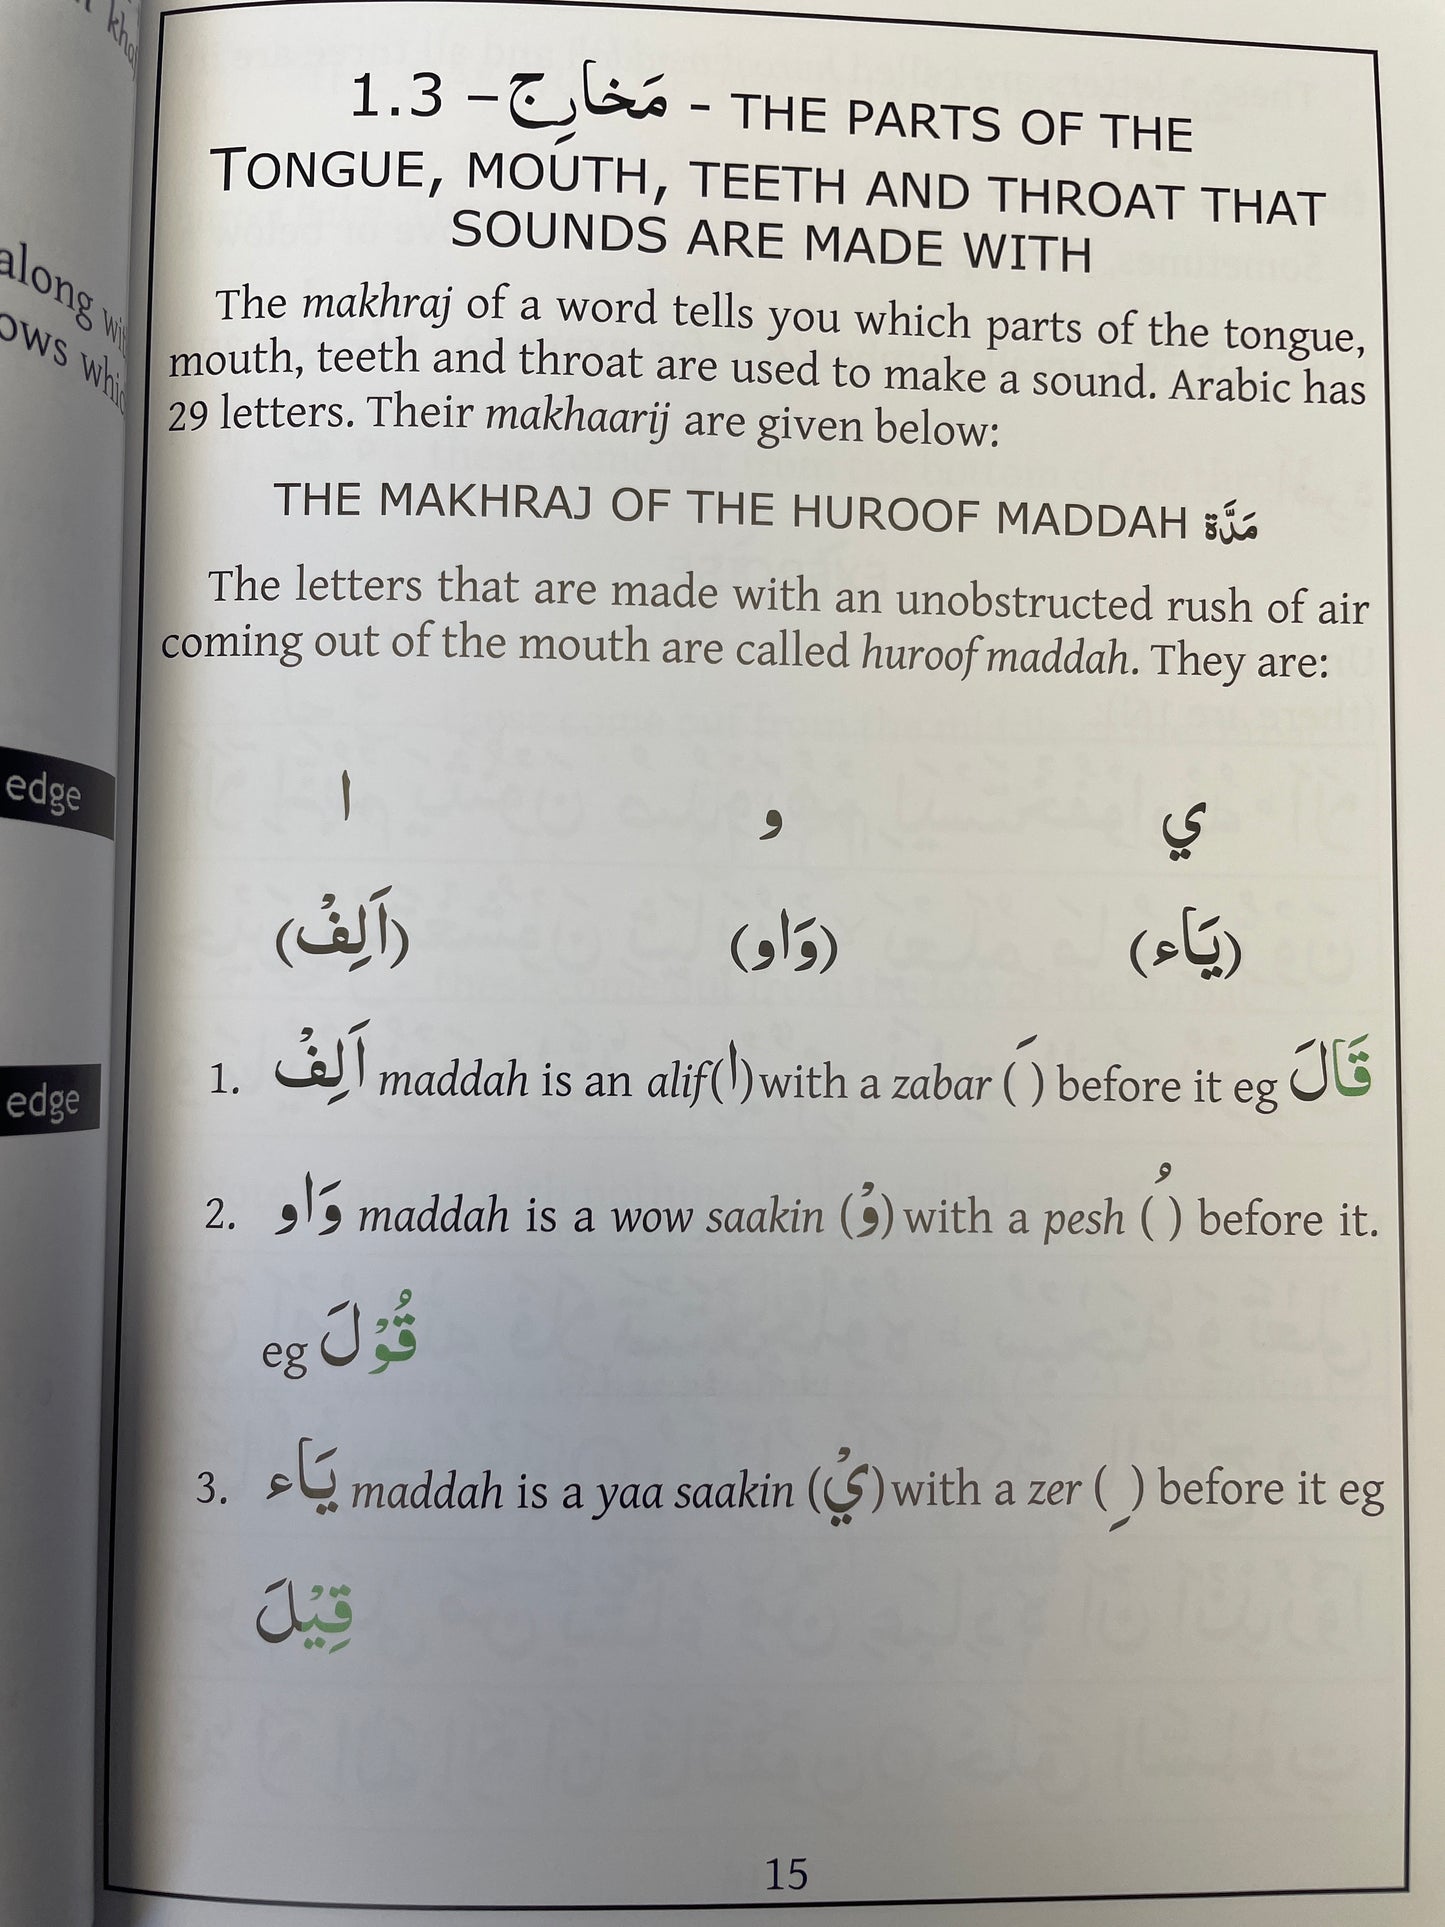 along
ows
edge
edge
1.3 – مَخارِج - THE PARTS OF THE
TONGUE, MOUTH, TEETH AND THROAT THAT
SOUNDS ARE MADE WITH
The makhraj of a word tells you which parts of the tongue,
mouth, teeth and throat are used to make a sound. Arabic has
29 letters. Their makhaarij are given below:
THE MAKHRAJ OF THE HUROOF MADDAH مَدَّة
The letters that are made with an unobstructed rush of air
coming out of the mouth are called huroof maddah. They are:
ا و ي
(اَلِفْ) (وَاو) (يَاء)
1. اَلِفْ maddah is an alif(ا) with a zabar ( َ ) before it eg قَالَ
2. وَاو maddah is a wow saakin (وْ) with a pesh ( ُ ) before it.
eg قُوْلَ
3. يَاء maddah is a yaa saakin (يْ) with a zer ( ِ ) before it eg
قِيْلَ
15